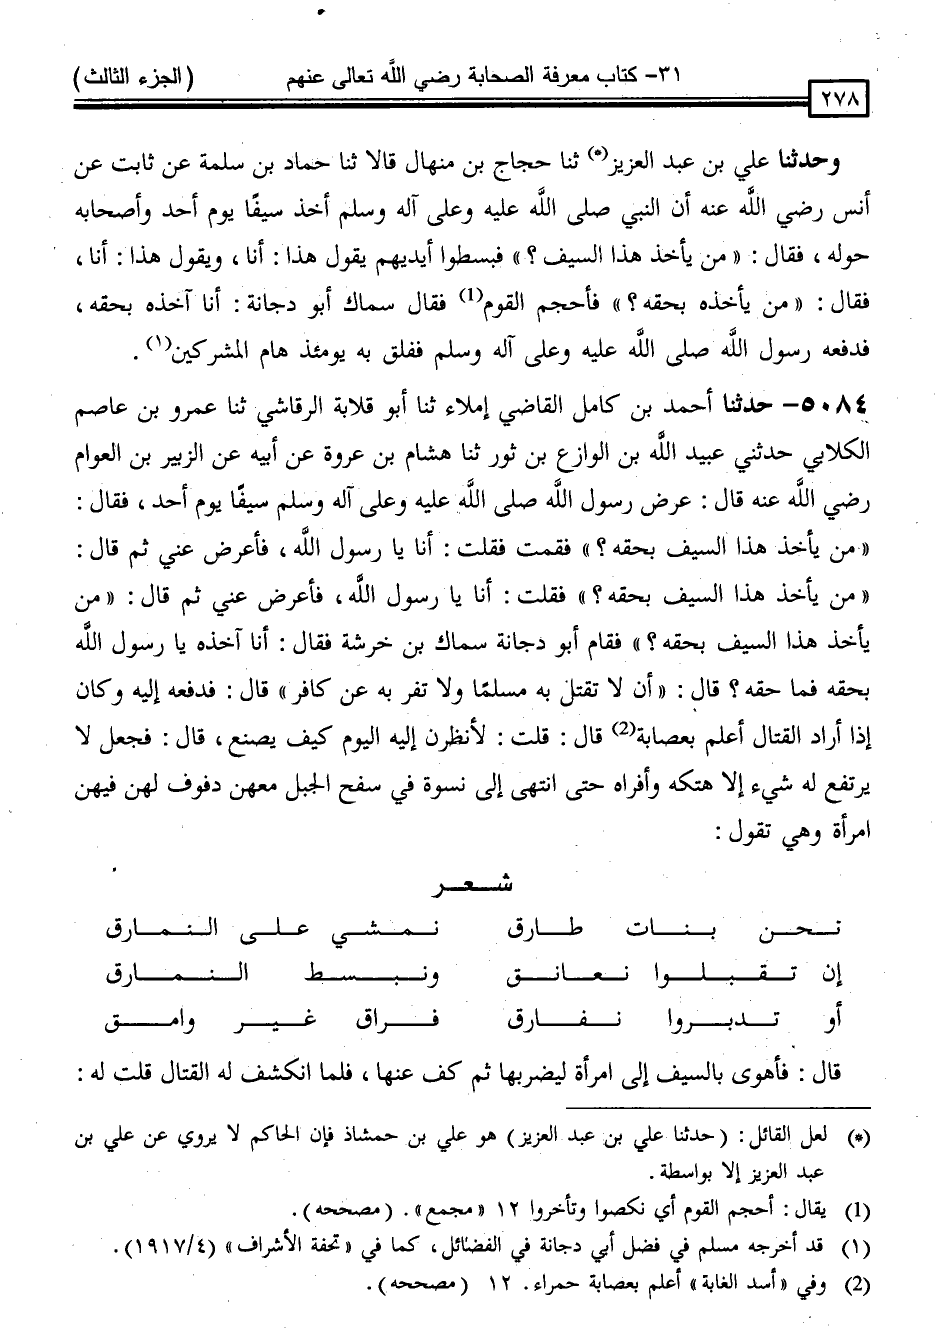 ٣١- كتاب معرفة الصحابة رضي الله تعالى عنهم (الجزء الثالث)
٢٧٨
وحدثنا علي بن عبد العزيز(*) ثنا حجاج بن منهال قالا ثنا حماد بن سلمة عن ثابت عن
أنس رضي الله عنه أن النبي صلى الله عليه وعلى آله وسلم أخذ سيفًا يوم أحد وأصحابه
حوله ، فقال : « من يأخذ هذا السيف ؟ » فبسطوا أيديهم يقول هذا : أنا ، ويقول هذا : أنا ،
فقال : « من يأخذه بحقه ؟ » فأحجم القوم(1) فقال سماك أبو دجانة : أنا آخذه بحقه ،
فدفعه رسول الله صلى الله عليه وعلى آله وسلم ففلق به يومئذ هام المشركين(١) .
٥٠٨٤- حدثنا أحمد بن كامل القاضي إملاء ثنا أبو قلابة الرقاشي ثنا عمرو بن عاصم
الكلابي حدثني عبيد الله بن الوازع بن ثور ثنا هشام بن عروة عن أبيه عن الزبير بن العوام
رضي الله عنه قال : عرض رسول الله صلى الله عليه وعلى آله وسلم سيفًا يوم أحد ، فقال :
« من يأخذ هذا السيف بحقه ؟ » فقمت فقلت : أنا يا رسول الله ، فأعرض عني ثم قال :
« من يأخذ هذا السيف بحقه ؟ » فقلت : أنا يا رسول الله ، فأعرض عني ثم قال : « من
يأخذ هذا السيف بحقه ؟ » فقام أبو دجانة سماك بن خرشة فقال : أنا آخذه يا رسول الله
بحقه فما حقه ؟ قال : « أن لا تقتل به مسلمًا ولا تفر به عن كافر » قال : فدفعه إليه وكان
إذا أراد القتال أعلم بعصابة(2) قال : قلت : لأنظرن إليه اليوم كيف يصنع ، قال : فجعل لا
يرتفع له شيء إلا هتكه وأفراه حتى انتهى إلى نسوة في سفح الجبل معهن دفوف لهن فيهن
امرأة وهي تقول :
شعر
نحن بنات طارق نمشي على النمارق
إن تقبلوا نعانق ونبسط النمارق
أو تدبروا نفارق فراق غير وامق
قال : فأهوى بالسيف إلى امرأة ليضربها ثم كف عنها ، فلما انكشف له القتال قلت له :
(*) لعل القائل : (حدثنا علي بن عبد العزيز) هو علي بن حمشاذ فإن الحاكم لا يروي عن علي بن
عبد العزيز إلا بواسطة .
(1) يقال : أحجم القوم أي نكصوا وتأخروا ١٢ « مجمع » . (مصححه) .
(١) قد أخرجه مسلم في فضل أبي دجانة في الفضائل ، كما في « تحفة الأشراف » (١٩١٧/٤) .
(2) وفي « أسد الغابة » أعلم بعصابة حمراء . ١٢ (مصححه) .